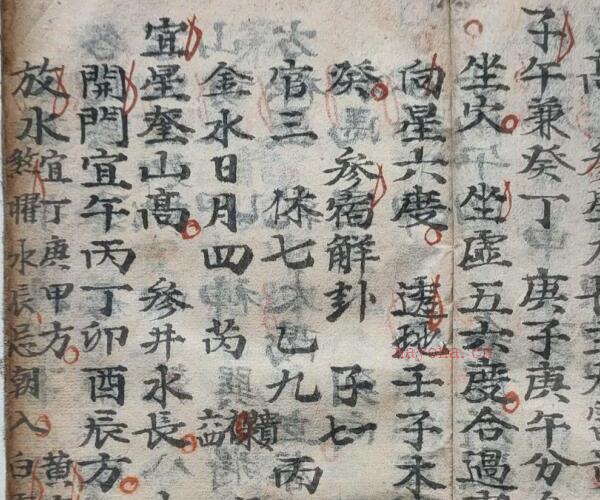 子午兼癸丁 庚子庚午分
坐穴 坐虛五六度合過
向星六度 透地壬子木
癸 參宿解卦 子七
官三 休七 乙九 丙
金水日月四 芮
宜星奎山高 參井水長
開門宜午丙丁卯酉辰方
放水宜丁庚甲方 黃
煞曜水辰忌朝入白